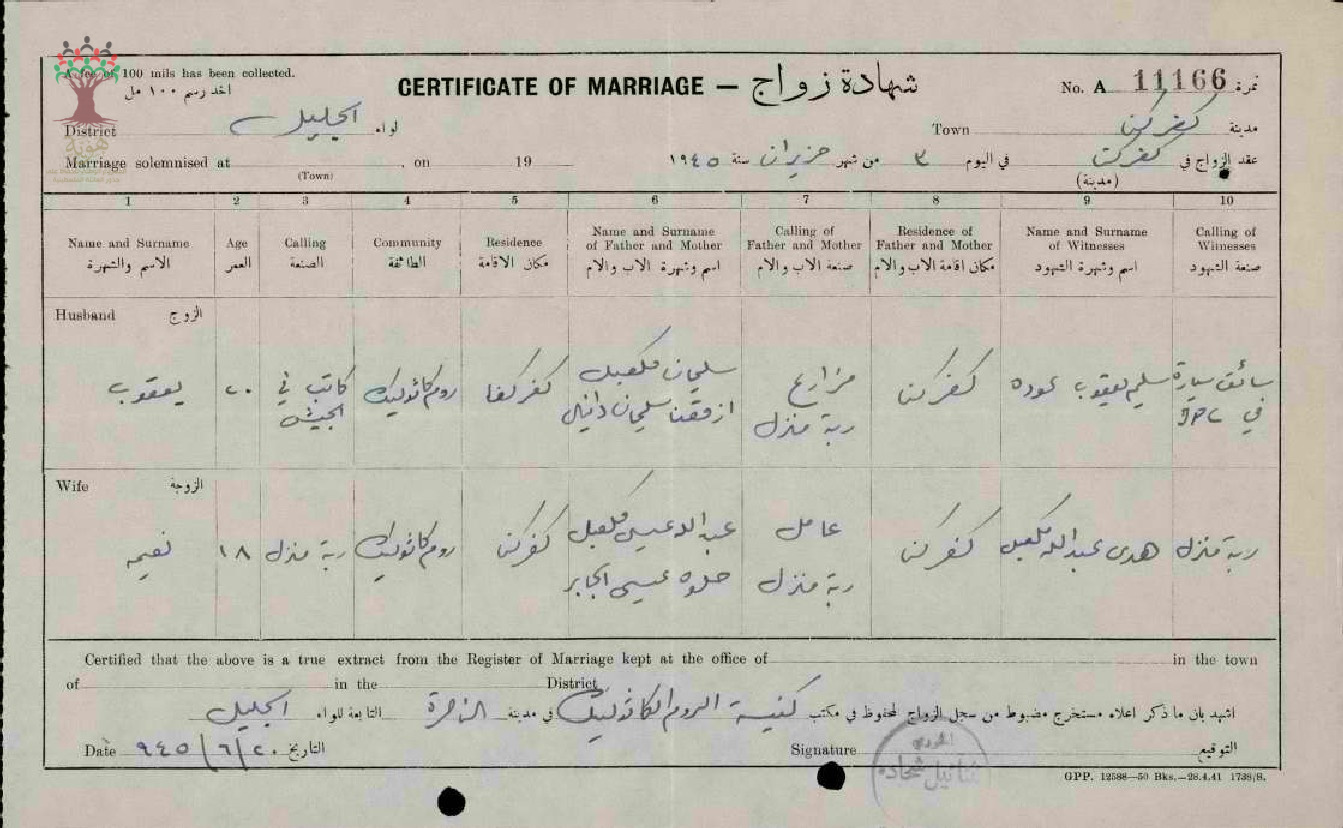 A fee of 100 mils has been collected.
اخذ رسم ١٠٠ مل
CERTIFICATE OF MARRIAGE — شهادة زواج
No. A 11166 نمرة
District الجليل لواء
Town كفركنا مدينة
Marriage solemnised at , on 19
(Town)
عقد الزواج في كفركنا في اليوم ٣ من شهر حزيران سنة ١٩٤٥
(مدينة)
1 2 3 4 5 6 7 8 9 10
Name and Surname
الاسم والشهرة
Age
العمر
Calling
الصنعة
Community
الطائفة
Residence
مكان الاقامة
Name and Surname of Father and Mother
اسم وشهرة الاب والام
Calling of Father and Mother
صنعة الاب والام
Residence of Father and Mother
مكان اقامة الاب والام
Name and Surname of Witnesses
اسم وشهرة الشهود
Calling of Witnesses
صنعة الشهود
Husband الزوج
يعقوب
٢٠
كاتب في
الجيش
روم كاثوليك
كفركنا
سليمان
سليمان دانيال
مزارع
ربة منزل
كفركنا
سليم يعقوب عوده
سائق سيارة
في
Wife الزوجة
نعيمه
١٨
ربة منزل
روم كاثوليك
كفركنا
عبدالله عيسى
حلوه عيسى الجابر
عامل
ربة منزل
كفركنا
هدى عبدالله
ربة منزل
Certified that the above is a true extract from the Register of Marriage kept at the office of in the town
of in the District
اشهد بان ما ذكر اعلاه مستخرج مضبوط من سجل الزواج المحفوظ في مكتب كنيسة الروم الكاثوليك في مدينة الناصرة التابعة للواء الجليل
Date ٩٤٥/٦/٢٠ التاريخ
Signature التوقيع
الخوري
شحاده
GPP. 12588—50 Bks.—28.4.41 1738/8.
هوية